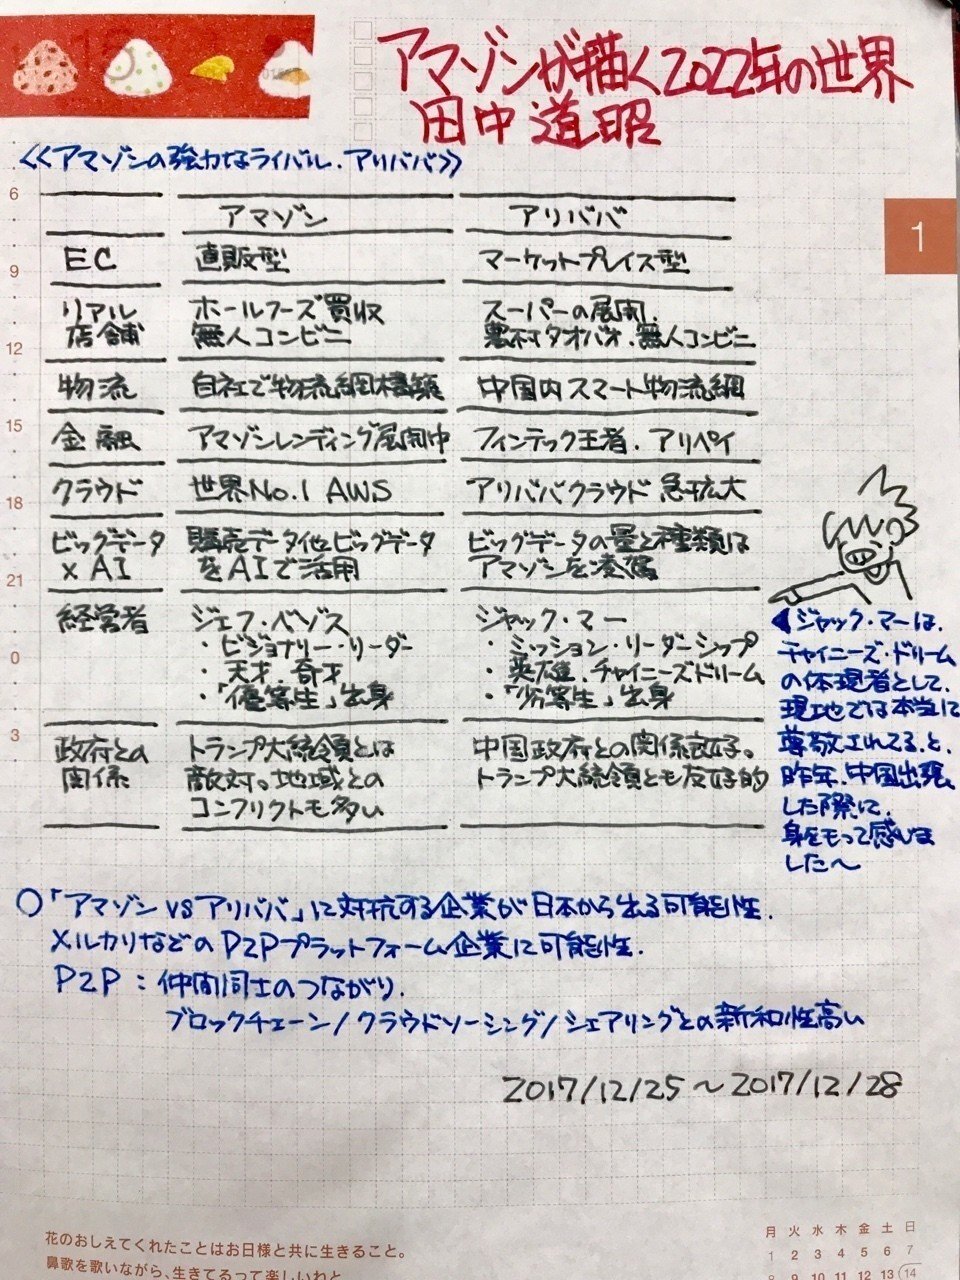 アマゾンが描く2022年の世界
田中道昭
<<アマゾンの強力なライバル.アリババ>>
アマゾン アリババ
EC 直販型 マーケットプレイス型
リアル店舗 ホールフーズ買収 スーパーの展開.
無人コンビニ 農村タオバオ.無人コンビニ
物流 自社で物流網構築 中国内スマート物流網
金融 アマゾンレンディング展開中 フィンテック王者.アリペイ
クラウド 世界No.1 AWS アリババクラウド 急拡大
ビッグデータ 販売データ他ビッグデータ ビッグデータの量と種類は
×AI をAIで活用 アマゾンを凌駕
経営者 ジェフ・ベゾス ジャック・マー
・ビジョナリー・リーダー ・ミッション・リーダーシップ
・天才.奇才 ・英雄.チャイニーズドリーム
・「優等生」出身 ・「劣等生」出身
政府との トランプ大統領とは 中国政府との関係良好。
関係 敵対。地域との トランプ大統領とも友好的
コンフリクトも多い
◀ジャック・マーは、
チャイニーズ・ドリーム
の体現者として、
現地では本当に
尊敬されてる、と、
昨年、中国出張
した際に、
身をもって感じま
した〜
○「アマゾン vs アリババ」に対抗する企業が日本から出る可能性.
メルカリなどのP2Pプラットフォーム企業に可能性.
P2P：仲間同士のつながり.
ブロックチェーン/クラウドソーシング/シェアリングとの新和性高い
2017/12/25〜2017/12/28
6
9
12
15
18
21
0
3
1
花のおしえてくれたことはお日様と共に生きること。
鼻歌を歌いながら、生きてるって楽しいわと
月 火 水 木 金 土 日
1 2 3 4 5 6 7
8 9 10 11 12 13 14